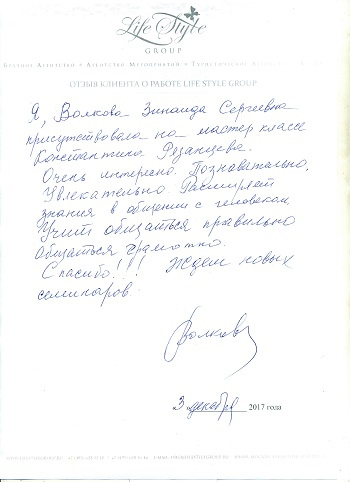 Life Style
GROUP
Агентство Мероприятий
ОТЗЫВ КЛИЕНТА О РАБОТЕ LIFE STYLE GROUP
Я, Волкова Зинаида Сергеевна
присутствовала на мастер классе
Константина Рязанцева.
Очень интерено. Познавательно,
Увлекательно. Расширяет
знания в общении с человеком,
Учит общаться правильно
общаться грамотно.
Спасибо!!! Ждем новых
семинаров.
Волкова
3 декабря 2017 года